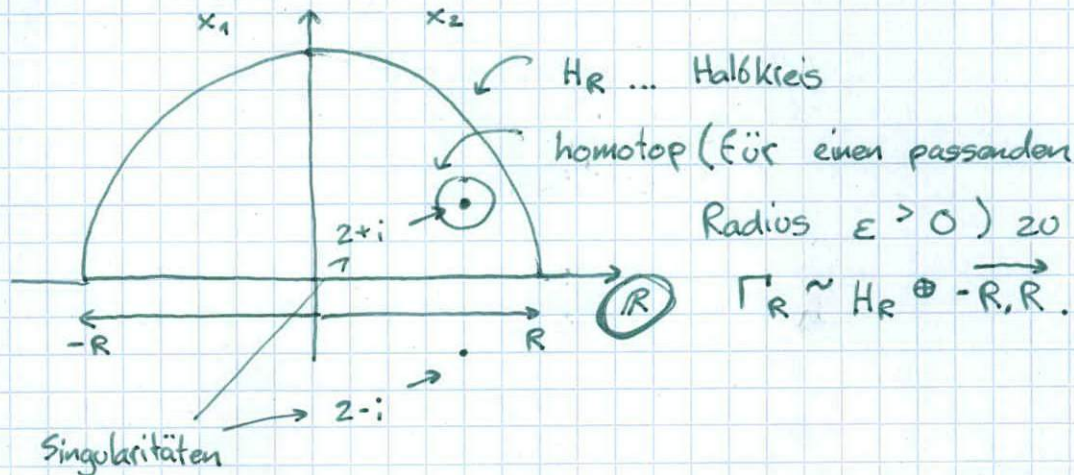 x₁ x₂
H_R ... Halbkreis
homotop (für einen passenden
2+i
Radius ε > 0) zu
ℝ
Γ_R ~ H_R ⊕ -R,R.
-R R
2-i
Singularitäten